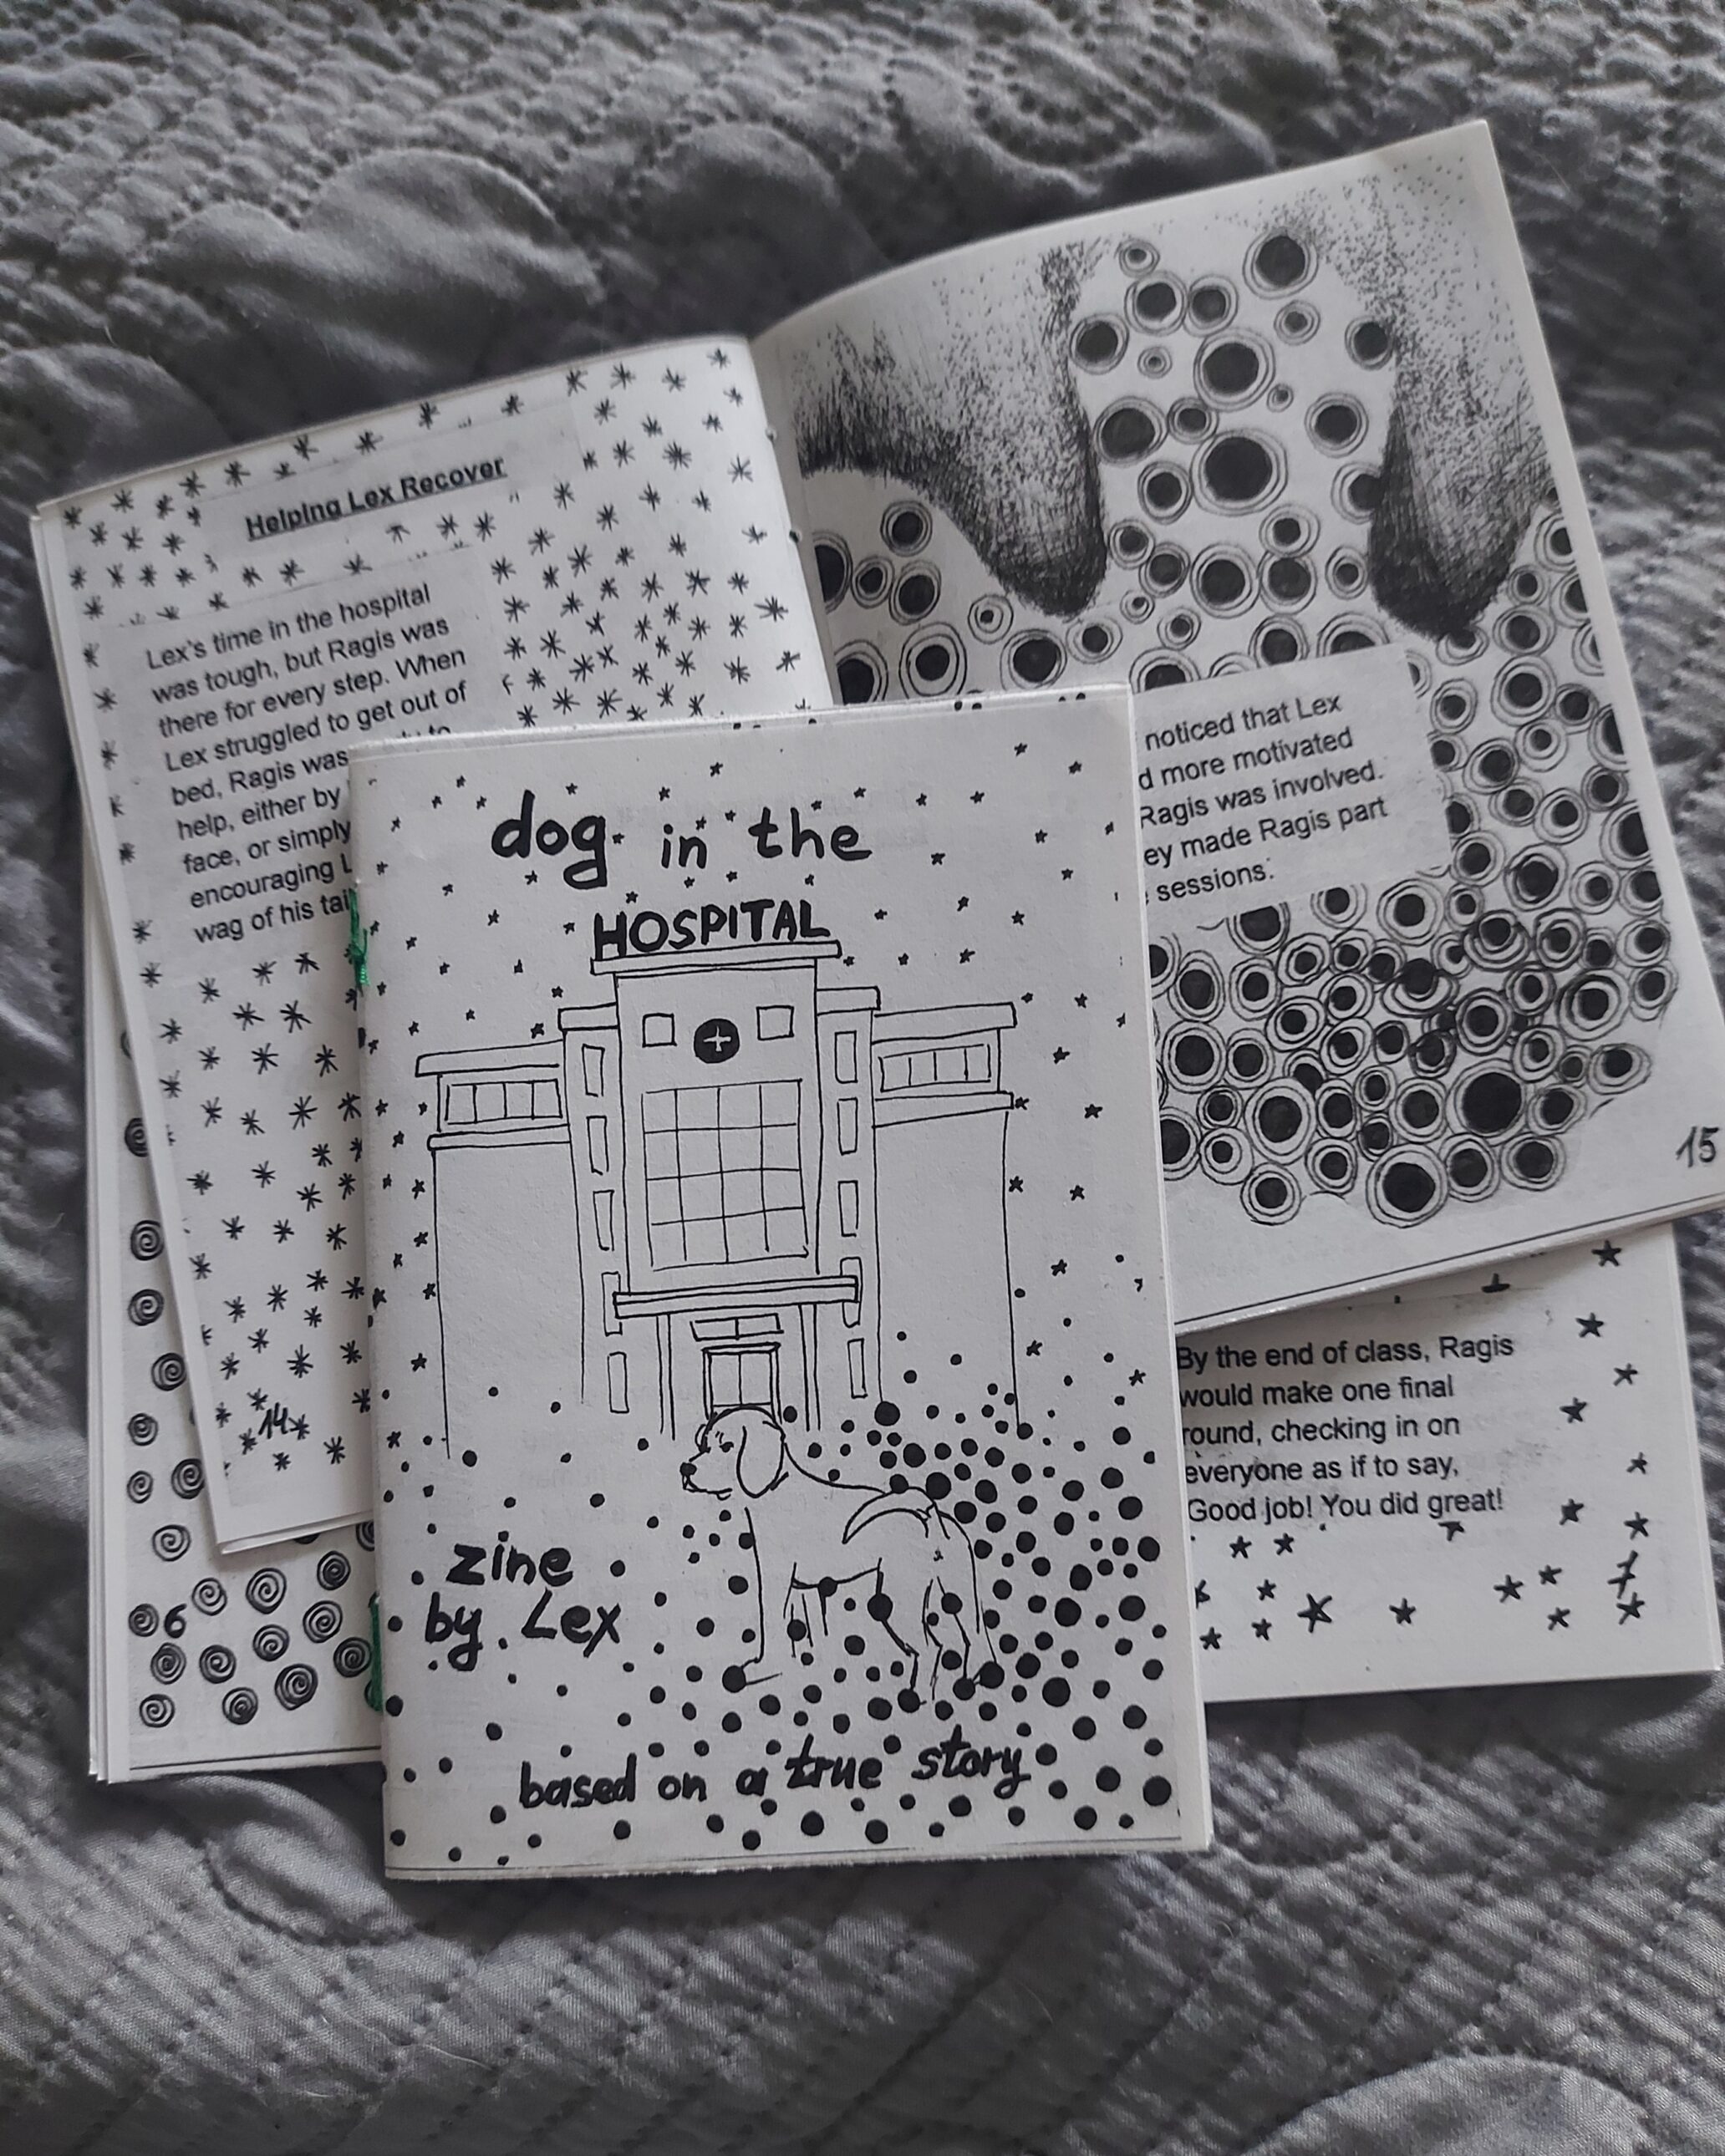 Helping Lex Recover
Lex's time in the hospital
was tough, but Ragis was
there for every step. When
Lex struggled to get out of
bed, Ragis was to
help, either by
face, or simply
encouraging
wag of his
14
noticed that Lex
more motivated
Ragis was involved.
made Ragis part
sessions.
15
dog in the
HOSPITAL
zine
by Lex
based on a true story
6
By the end of class, Ragis
would make one final
round, checking in on
everyone as if to say,
Good job! You did great!